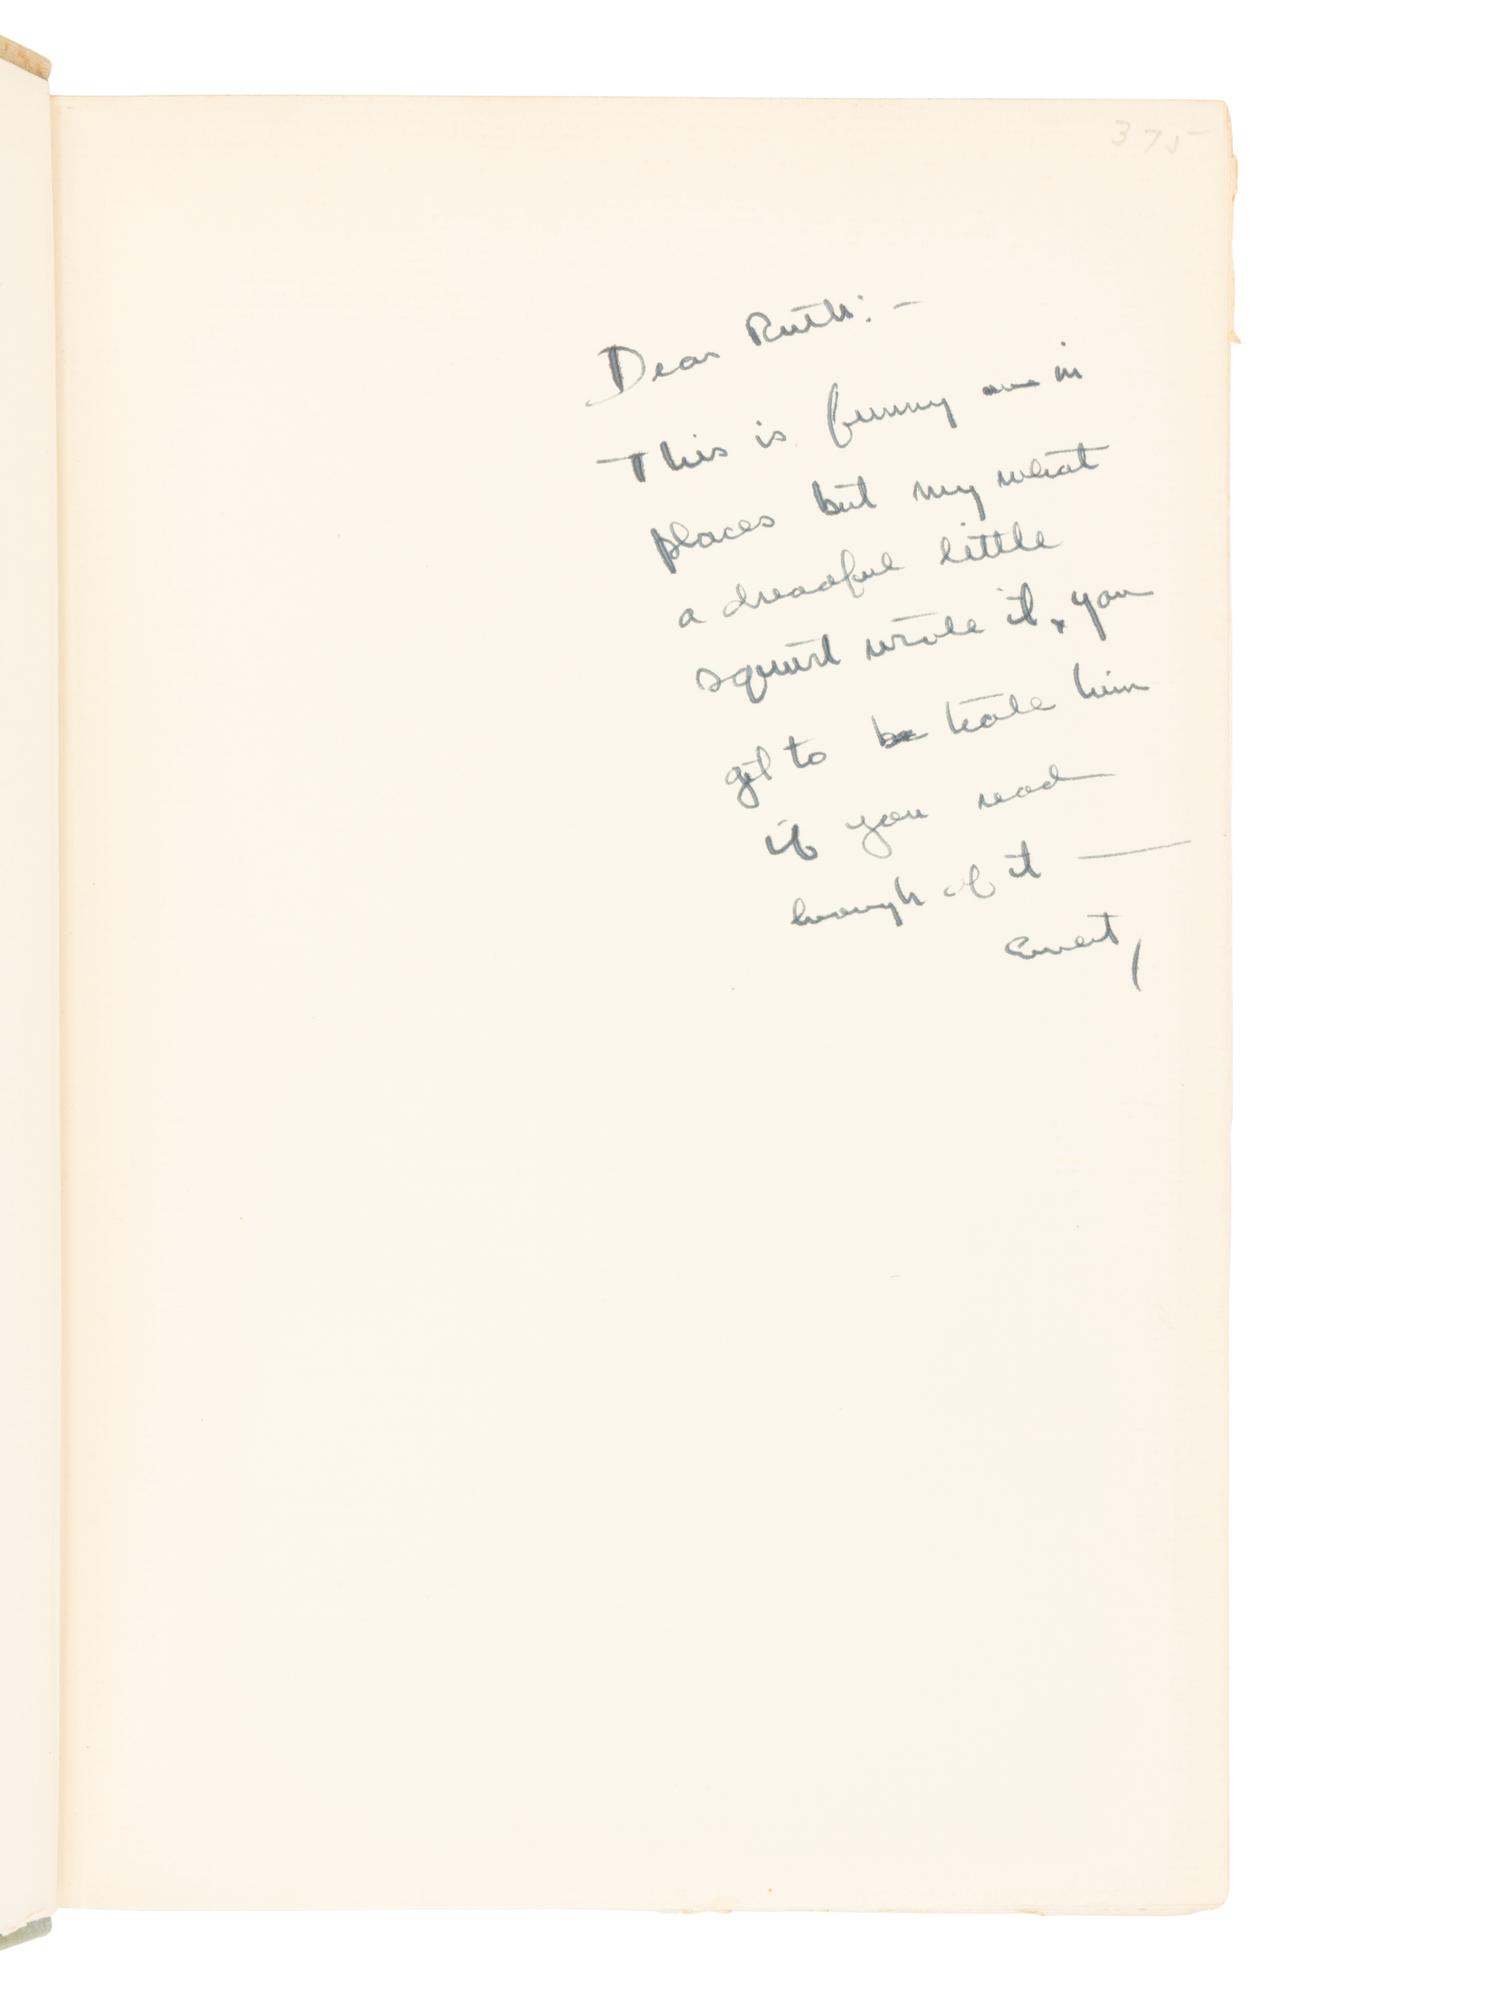 375-
Dear Ruth: —
This is funny in
places but my what
a dreadful little
squirt wrote it, you
get to hate him
if you read
enough of it —
Ernest,